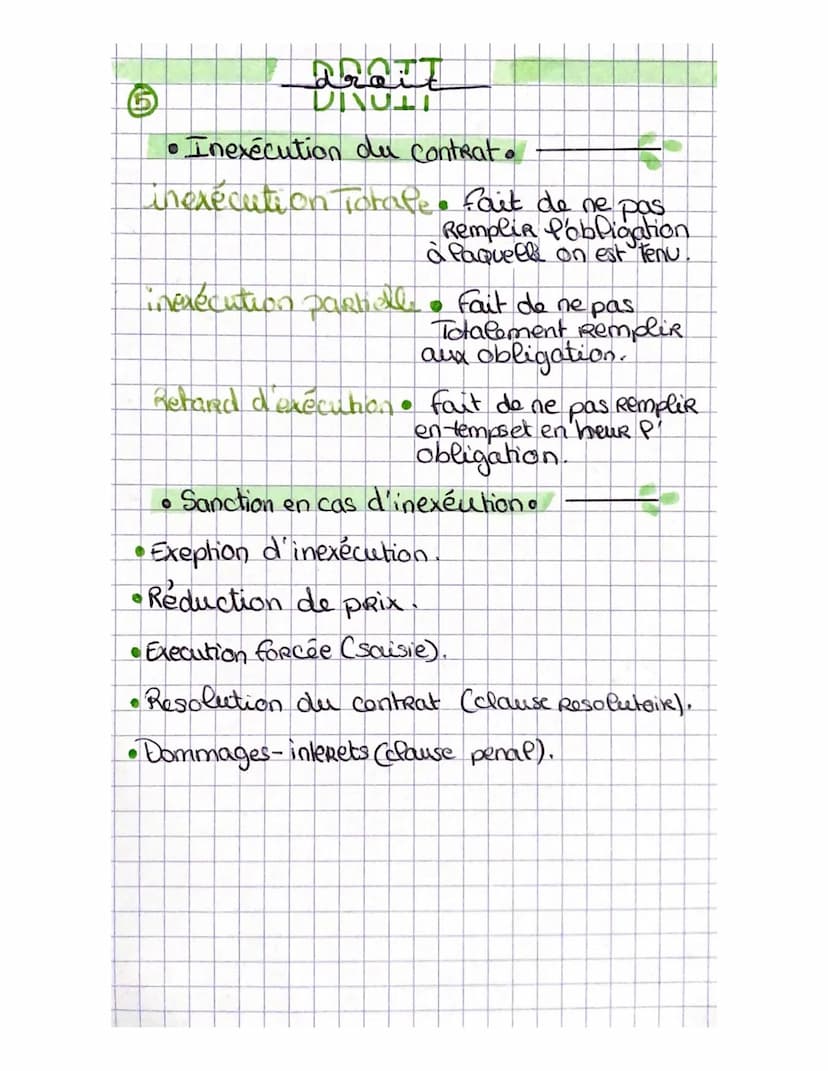 DROIT
droit
DROIT
5
• Inexécution du contrat •
inexécution Totale • fait de ne pas
Remplir l'obligation
à laquelle on est Tenu.
inexécution partielle • fait de ne pas
Totalement Remplir
aux obligation.
Retard d'exécution • fait de ne pas Remplir
en tempset en heur l'
obligation.
• Sanction en cas d'inexéution •
• Exeption d'inexécution.
• Réduction de prix.
• Execution forcée (saisie).
• Resolution du contrat (clause Resolutoire).
• Dommages-interets (clause penal).